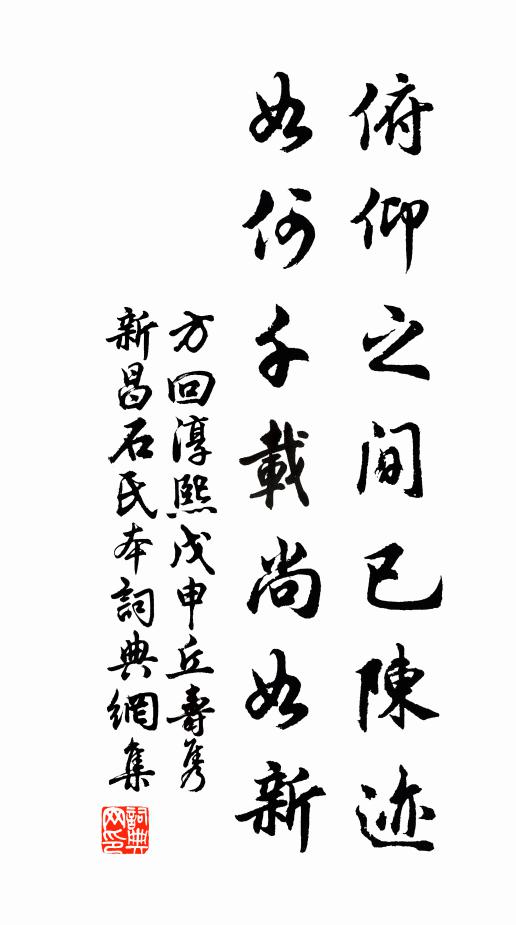 俯仰之间已陳迹
如何千載尚如新
方回淳熙戊申丘壽隽
新昌石氏本詞典網集
詞典网印